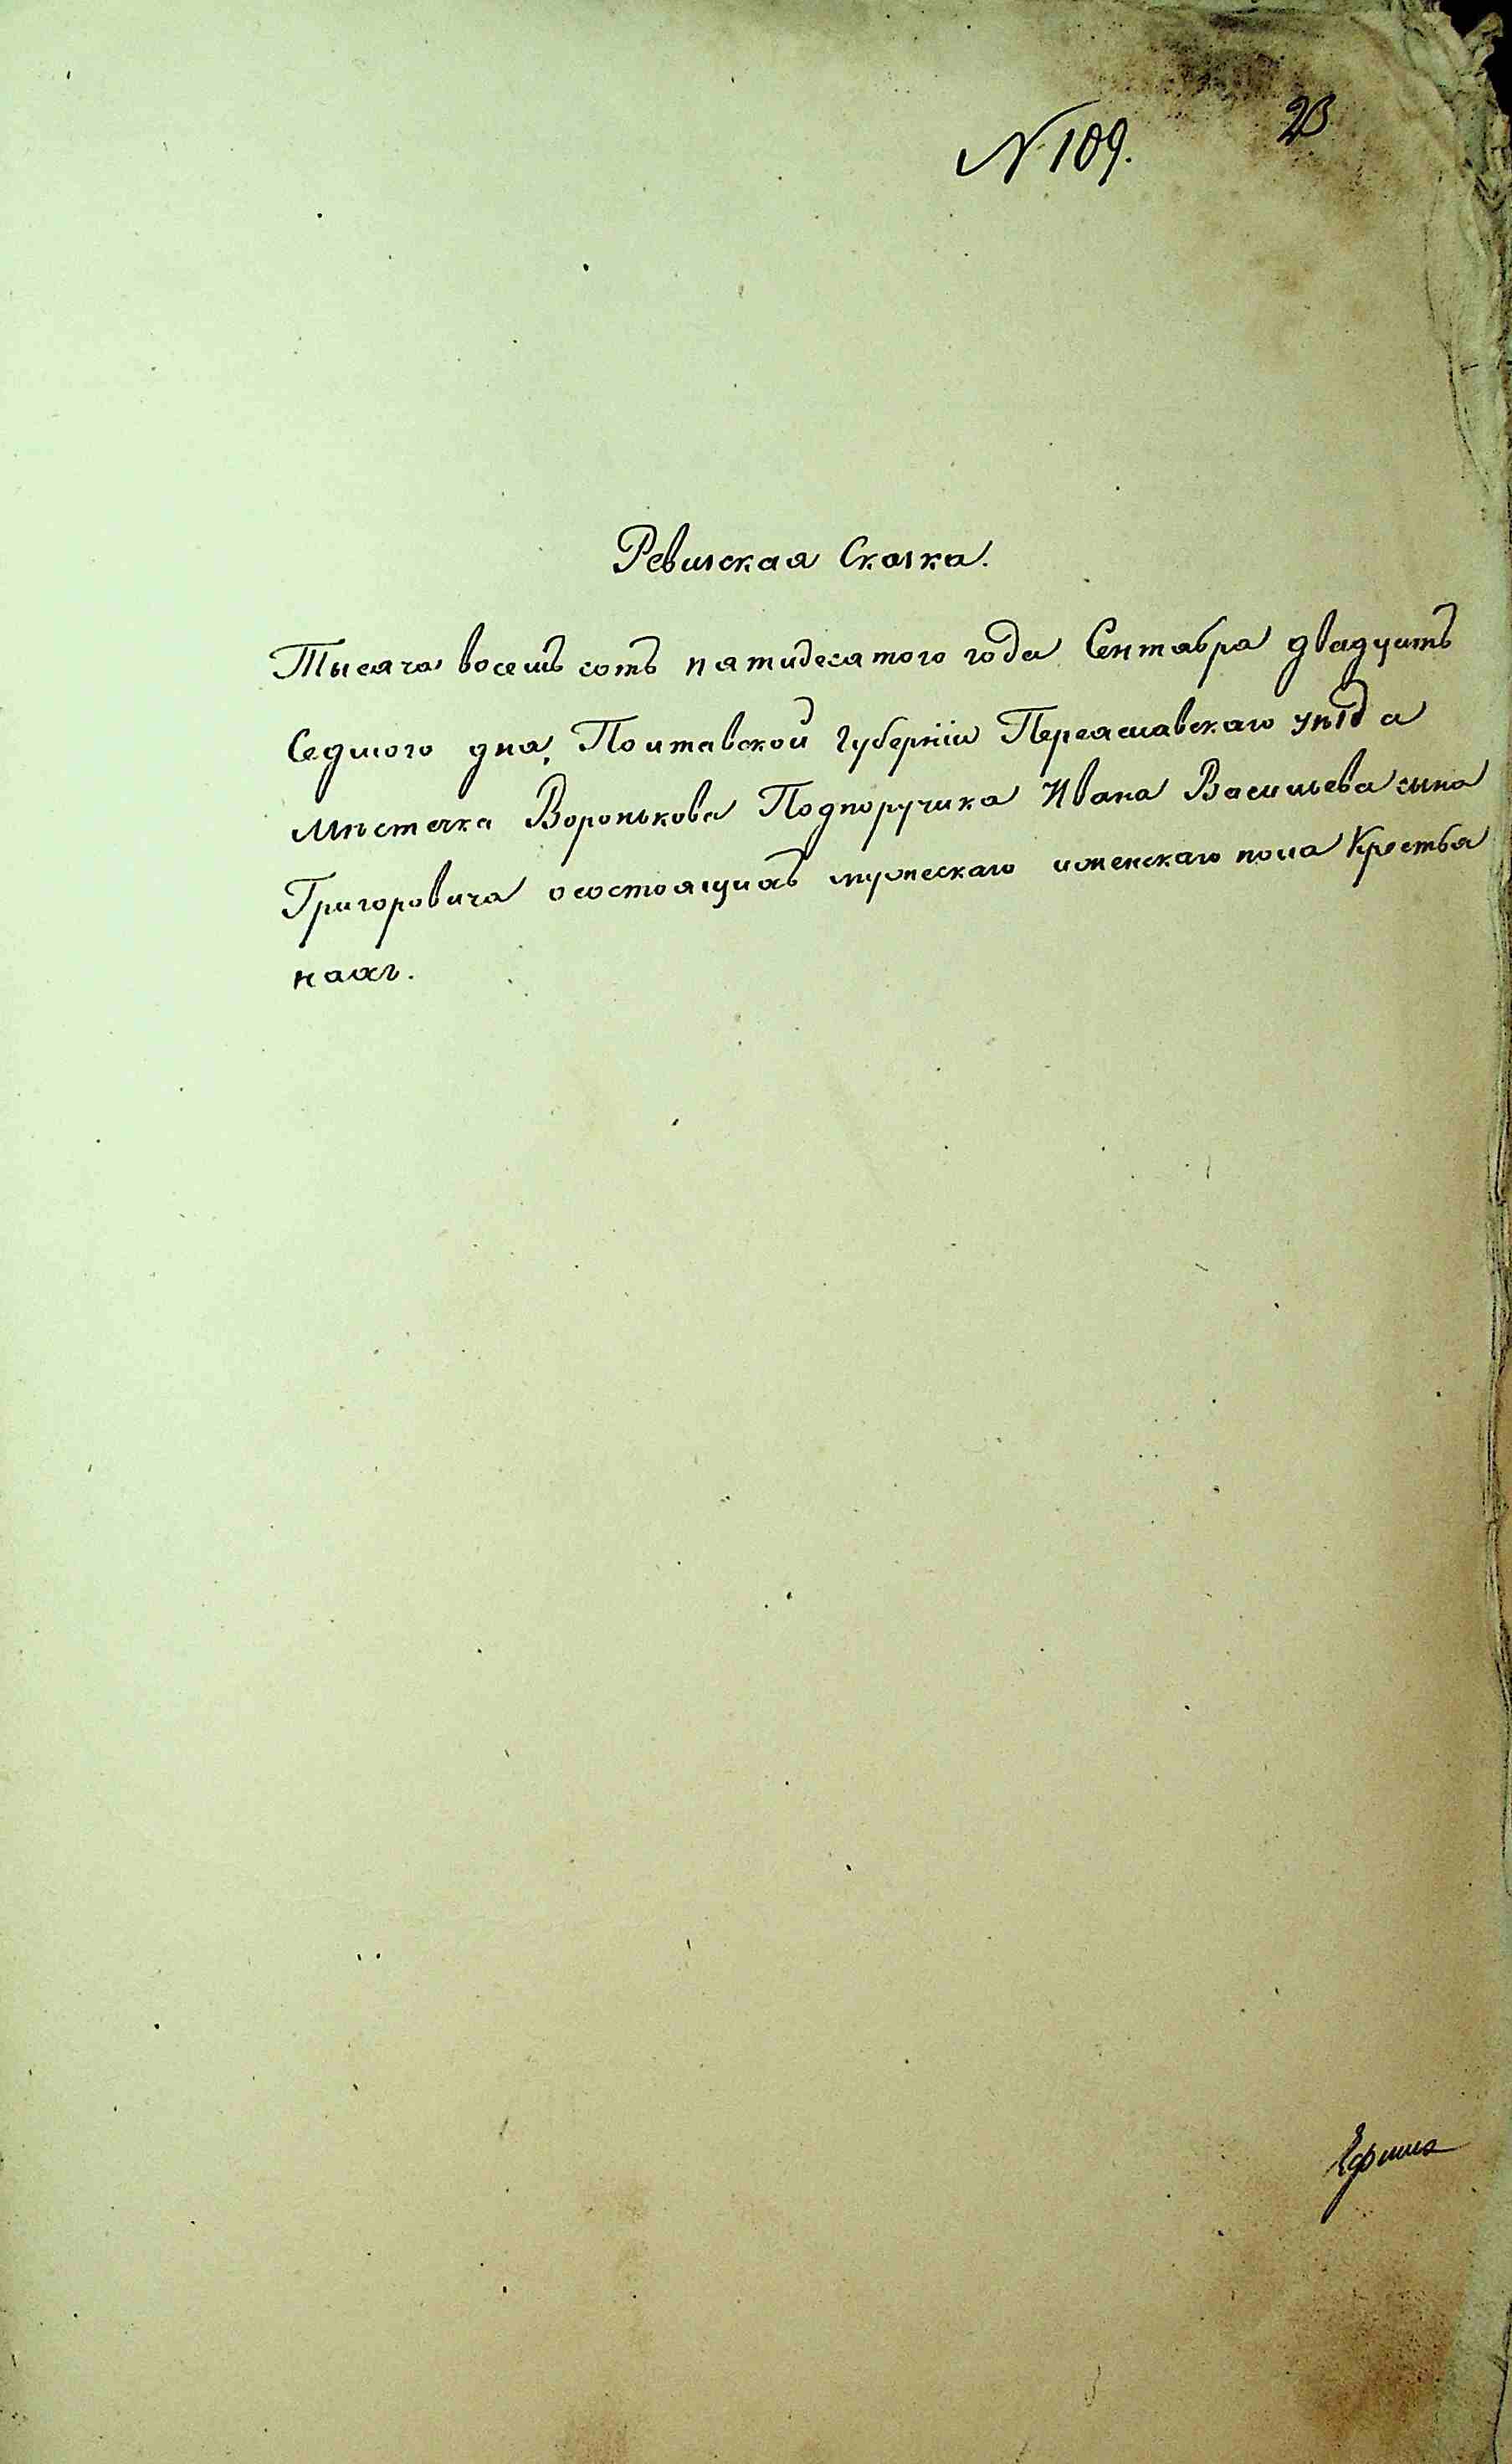 N 109.
23
Ревизская Сказка.
Тысяча восемь сотъ пятидесятого года Сентября двадцать
Седмого дня, Полтавской Губерніи Переяславскаго уѣзда
Мѣстечка Воронькова Подпоручика Ивана Васильева сына
Григоровича о состоящихъ мужескаго и женскаго пола Крестья
нахъ.